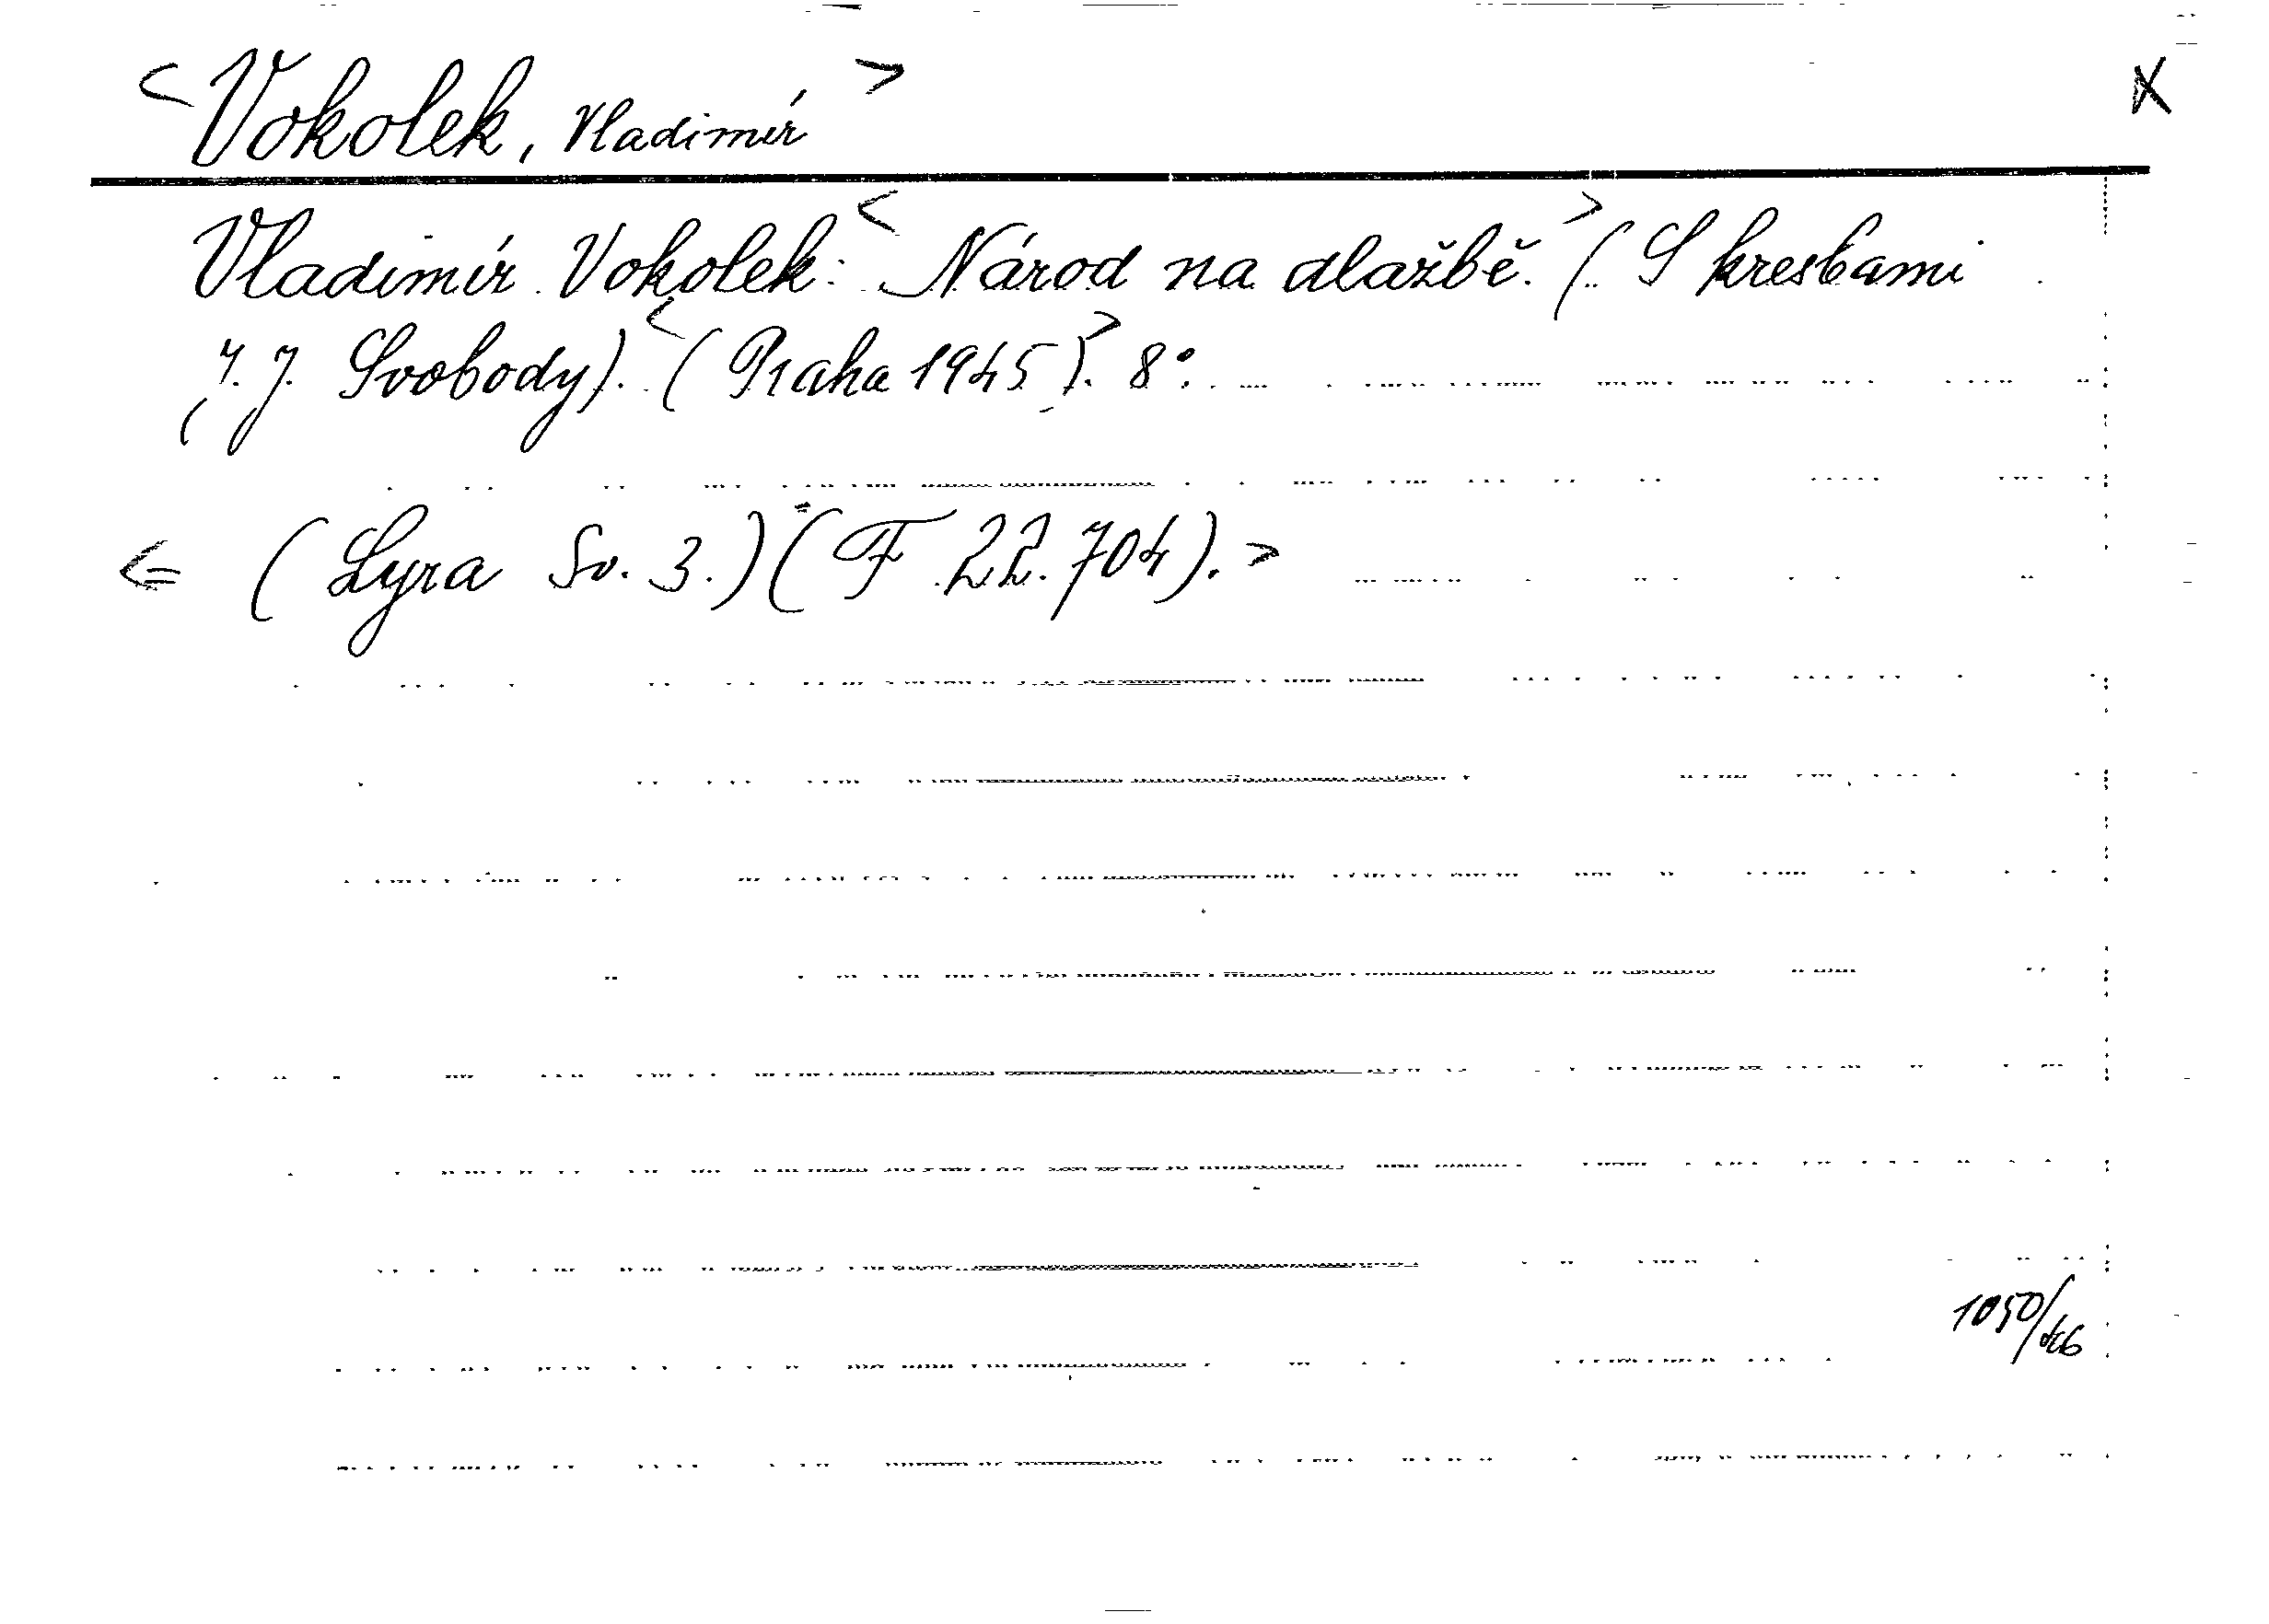 <Vokolek, Vladimír> X
Vladimír Vokolek: <Národ na dlažbě.> (S kresbami
J. J. Svobody). <(Praha 1945).> 8°.
<= (Lyra Sv. 3.) = (F 22.704). >
1050/46